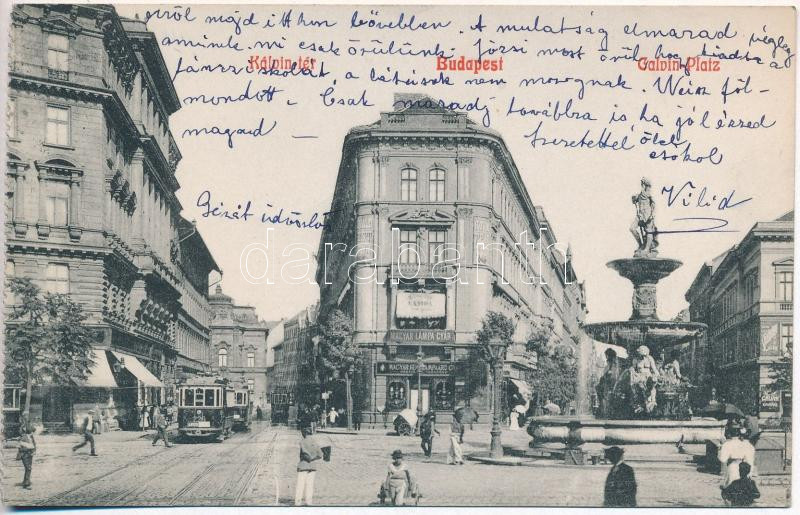 erről majd itthon bővebben. A mulatság elmarad végleg
aminek mi csak örülünk. Józsi most örül hogy kiadta a
táncz iskolát, a bátéisek nem mozognak. Weisz föl-
mondott. Csak maradj továbbra is ha jól érzed
magad —
Szeretettel ölel
csókol
Vilid
Gézát üdvözlöm
Kálvin tér
Budapest
Calvin-Platz
darabanth
MAGYAR LÁMPA GYÁR